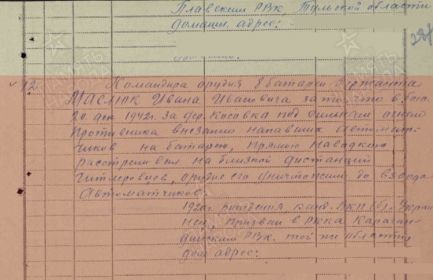 Плавским РВК Тульской области
домашн. адрес:
12. Командира орудия 8 батареи Сержанта
МАСЛЮК Ивана Ивановича за то, что в бою
20 дек 1942г. за дер. Косовка под сильным огнем
противника внезапно напавших автомат-
чиков на батарею, прямою наводкою
расстреливал на близкой дистанции
гитлеровцев, орудие его уничтожило до взвода
Автоматчиков.
1920г. рождения, канд. ВКП(б), Украи-
нец, призван в РККА Караган-
динским РВК. той же области
дом. адрес: